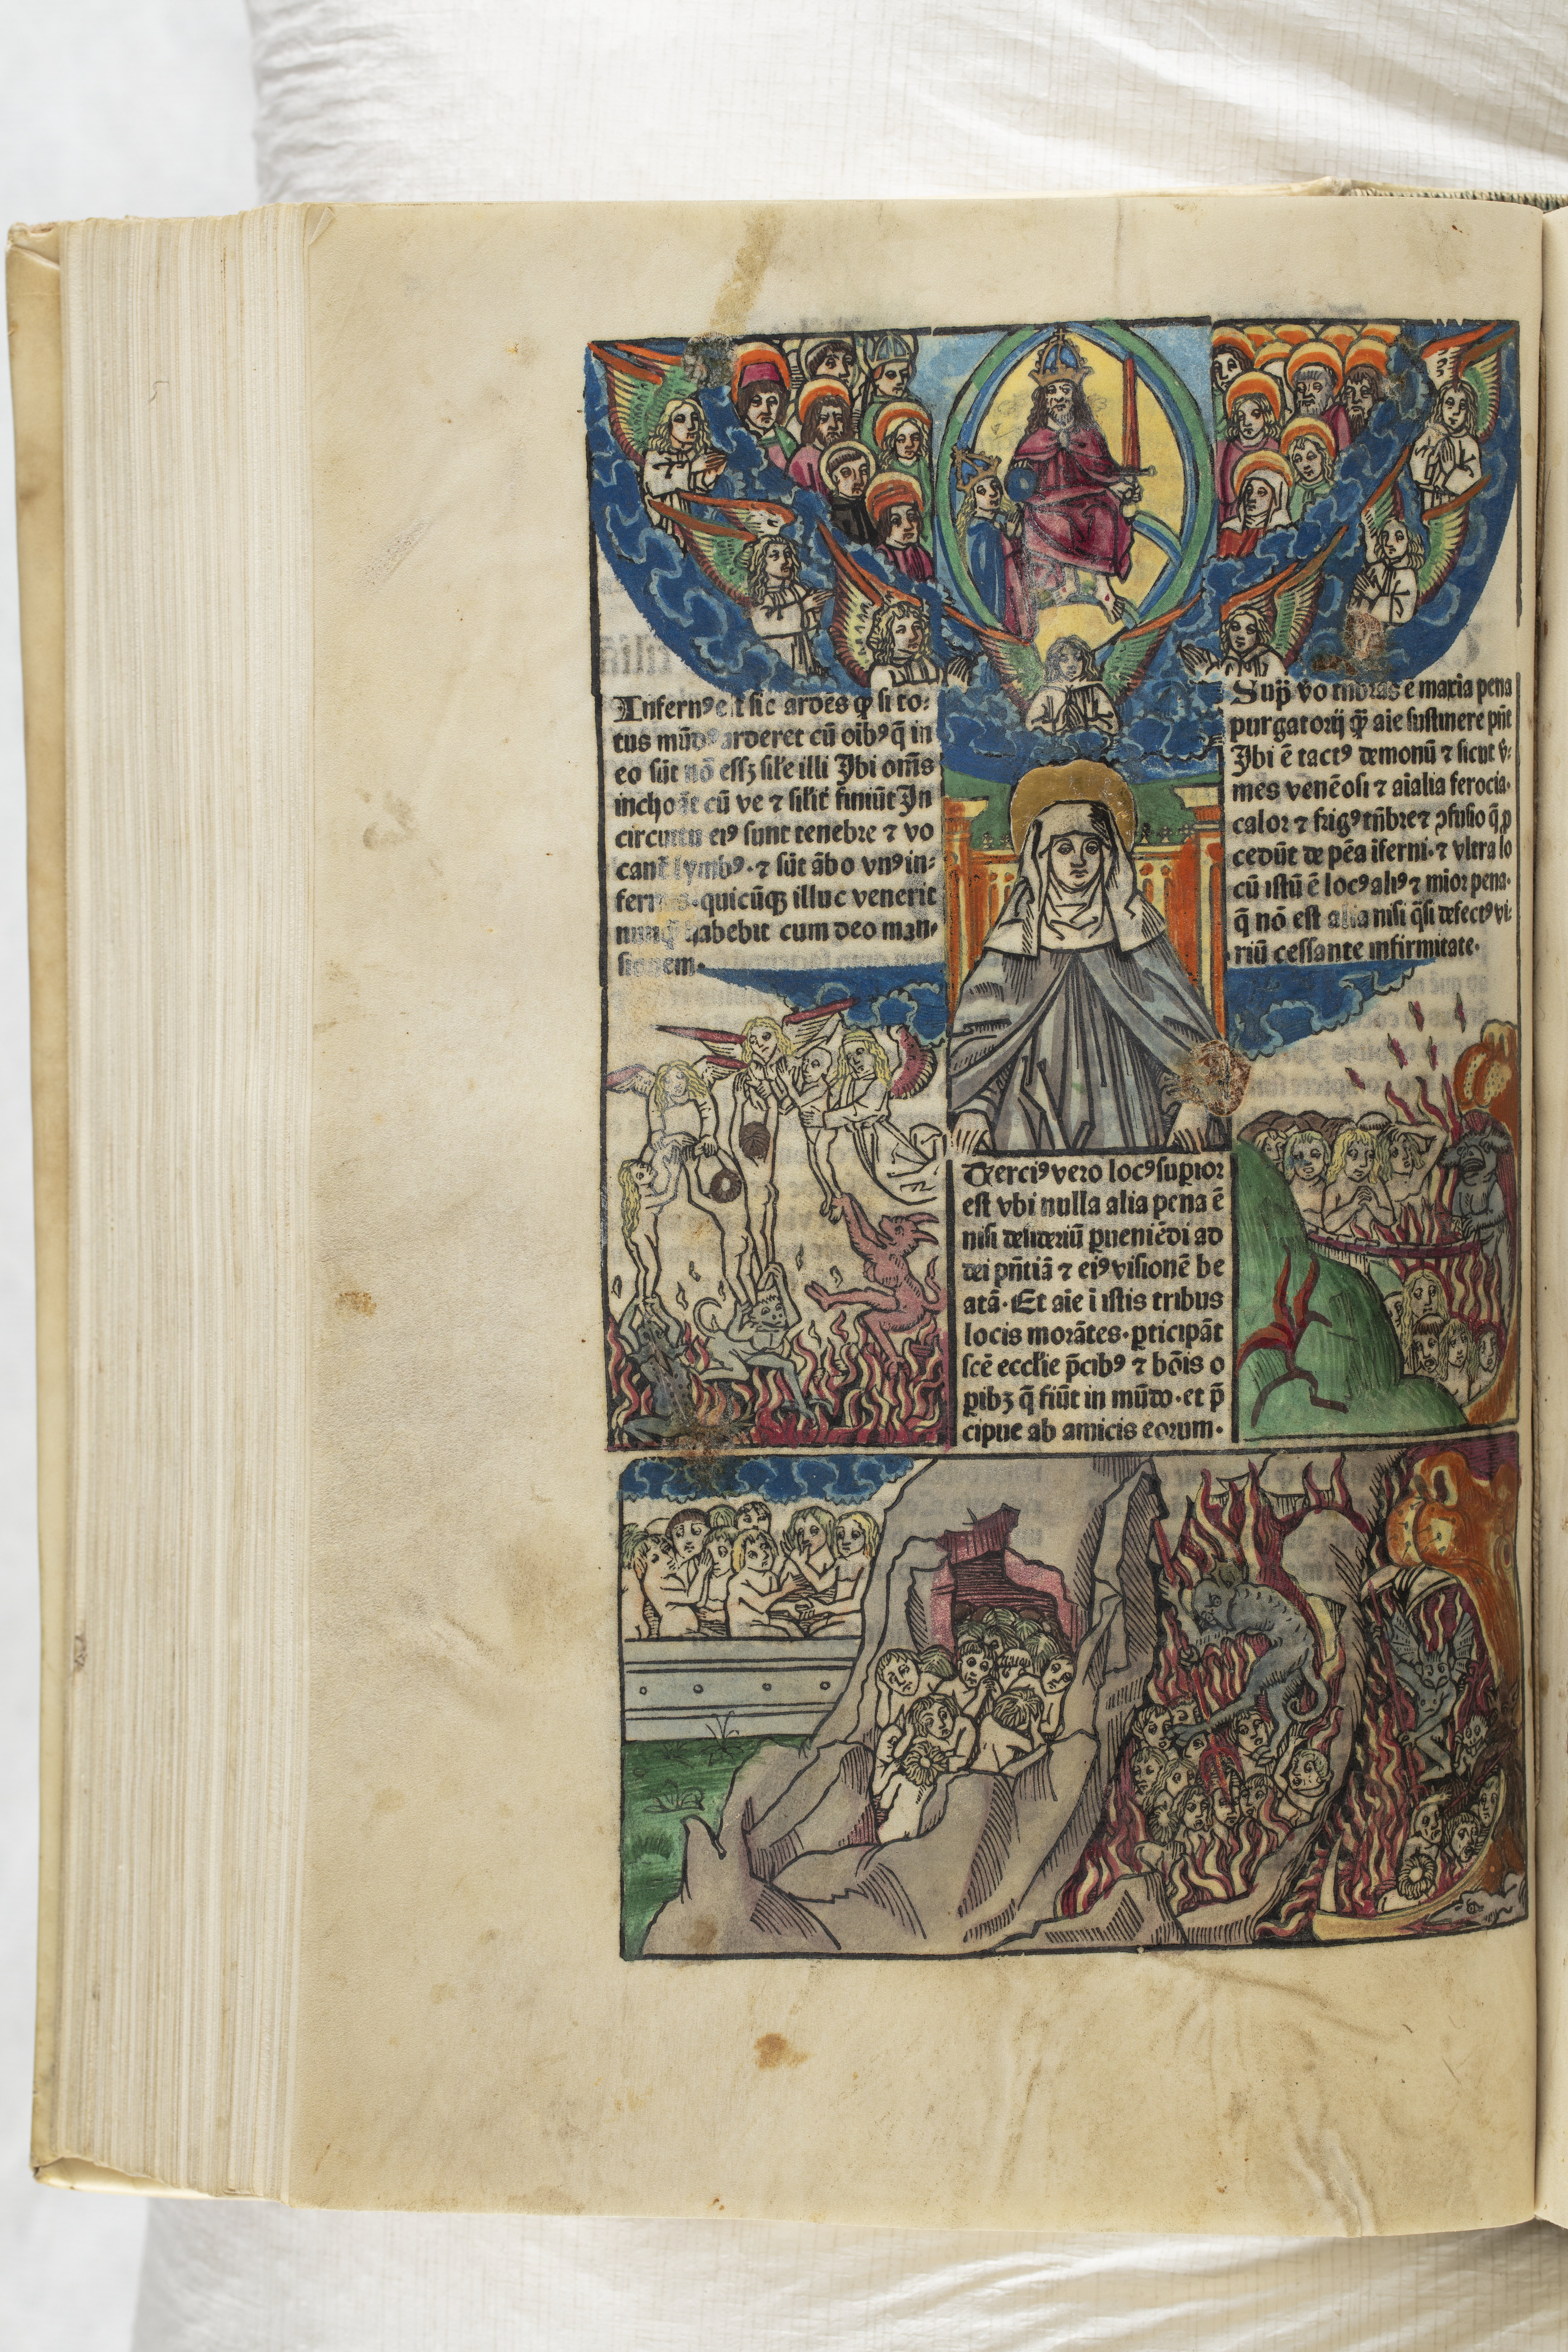 Infernꝰ est sic ardēs ꝙ si to⸗
tus mūdꝰ arderet cū oībꝰ q̄ in
eo sūt nō essꝫ sile illi Ibi om̄s
inchoāt cū ve ⁊ silit̄ finiūt In
circuitu eiꝰ sunt tenebre ⁊ vo
cant̄ lymbꝰ· ⁊ sūt ābo vnꝰ in⸗
fernꝰ·quicūqꝫ illuc venerit
nunq̄ habebit cum deo man⸗
sionem·
Sup̄ vo tnbras ē maxia pena
purgatorij q̄ꝫ aīe sustinere pn̄t
Ibi ē tactꝰ demonū ⁊ sicut v̄⸗
mes venēosi ⁊ aīalia ferocia·
calor ⁊ frigꝰ tn̄bre ⁊ ꝯfusio q̄ ꝓ
cedūt de pēa īferni·⁊ vltra lo
cū istū ē locꝰ aliꝰ ⁊ mīor pena·
q̄ nō est alia nisi q̄si defectꝰ vi⸗
riū cessante infirmitate·
Terciꝰ vero locꝰ suꝑior
est vbi nulla alia pena ē
nisi desideriū ꝑueniēdi ad
dei pn̄tiā ⁊ eiꝰ visionē be
atā· Et aīe ī istis tribus
locis morātes·ꝑticipāt
scē eccl̄ie p̄cibꝰ ⁊ bōis o
ꝑibꝫ q̄ fiūt in mūdo·et p̄
cipue ab amicis eorum·